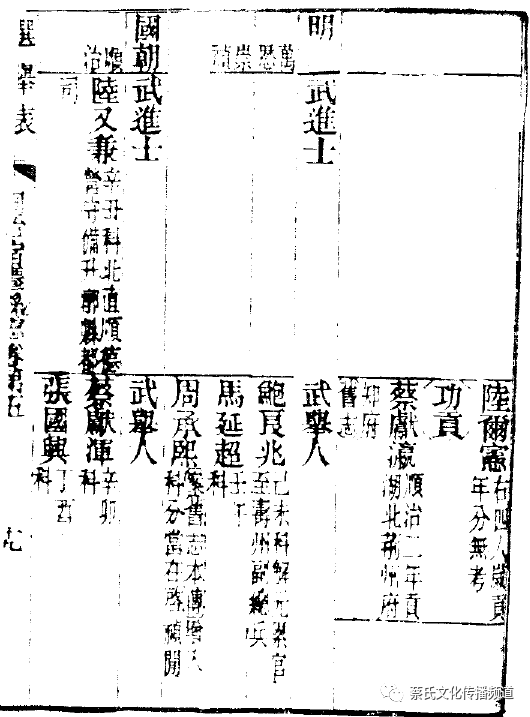 陸爾憲 右四人歲貢年分無考
功貢
蔡獻瀛 順治二年貢湖北荊州府知府舊志
明
萬歷
崇禎
武進士
武舉人
鮑良兆 己未科解元累官至衢州副總兵
馬延超 壬午科
周承熙 案舊志本傳增入科分當在啓禎間
國朝
順治
武進士
陸又兼 辛丑科北直順德營守備升都司
武舉人
蔡獻渾 辛卯科
張國興 丁酉科
選舉表
九
蔡氏文化传播频道